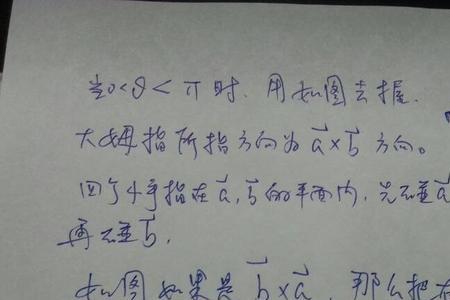 当0<θ<π时,用如图去握.
大姆指所指方向为a⃗×b⃗方向。
四个手指在a⃗,b⃗的平面内,先碰a⃗
再碰b⃗,
如图如果是b⃗×a⃗,那么把右